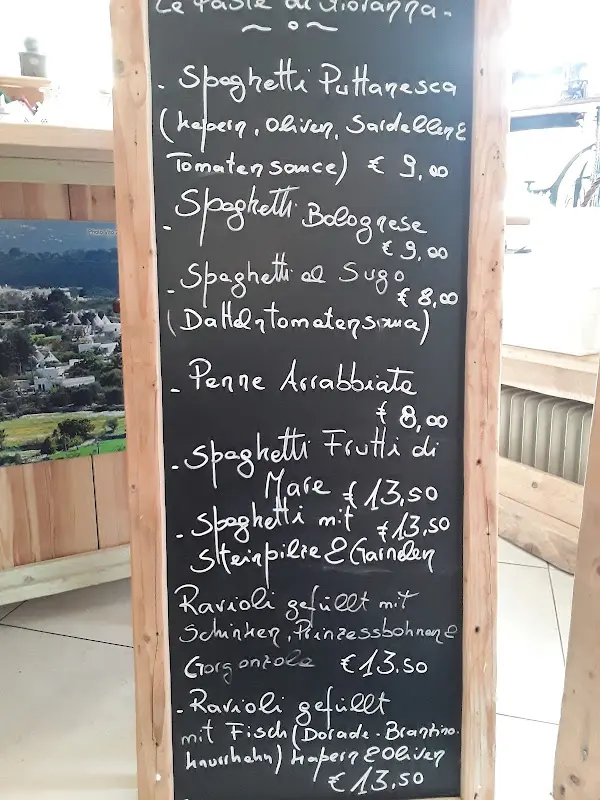 Le Paste di Giovanna -
~ o ~
- Spaghetti Puttanesca
(Kapern, Oliven, Sardellen &
Tomatensauce) € 9,00
- Spaghetti Bolognese
€ 9,00
- Spaghetti al Sugo
€ 8,00
(Datteltomatensauce)
- Penne Arrabbiata
€ 8,00
- Spaghetti Frutti di
Mare € 13,50
- Spaghetti mit € 13,50
Steinpilze & Garnelen
Ravioli gefüllt mit
Schinken, Prinzessbohnen &
Gorgonzola € 13.50
- Ravioli gefüllt
mit Fisch (Dorade - Brantino.
Knurrhahn) Kapern & Oliven
€ 13,50